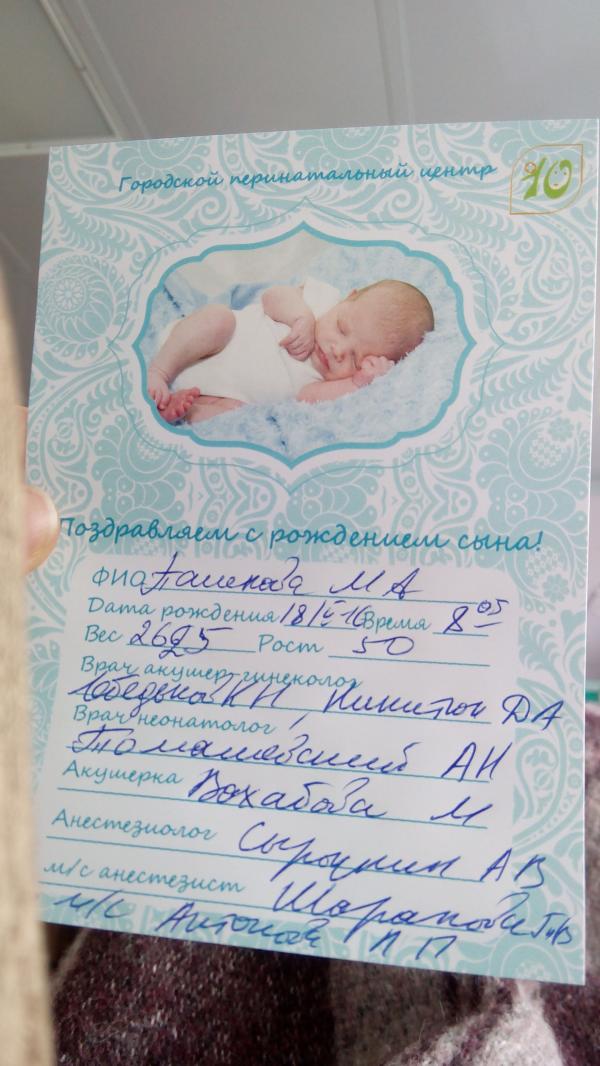 Городской перинатальный центр
10
Поздравляем с рождением сына!
ФИО М А
Дата рождения 18/V-16 Время 8 05
Вес 26 5 Рост 50
Врач акушер-гинеколог
КН, Никитюк ДА
Врач неонатолог
Томашевский АН
Акушерка Вахабова М
Анестезиолог АВ
м/с анестезист Шарапова
м/с Антонова